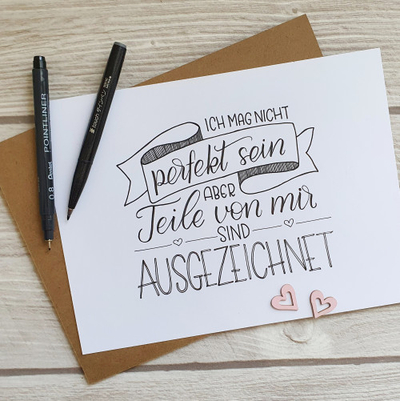 ICH MAG NICHT
perfekt sein
ABER
Teile von mir
SIND
AUSGEZEICHNET
POINTLINER
0.8 Pentel